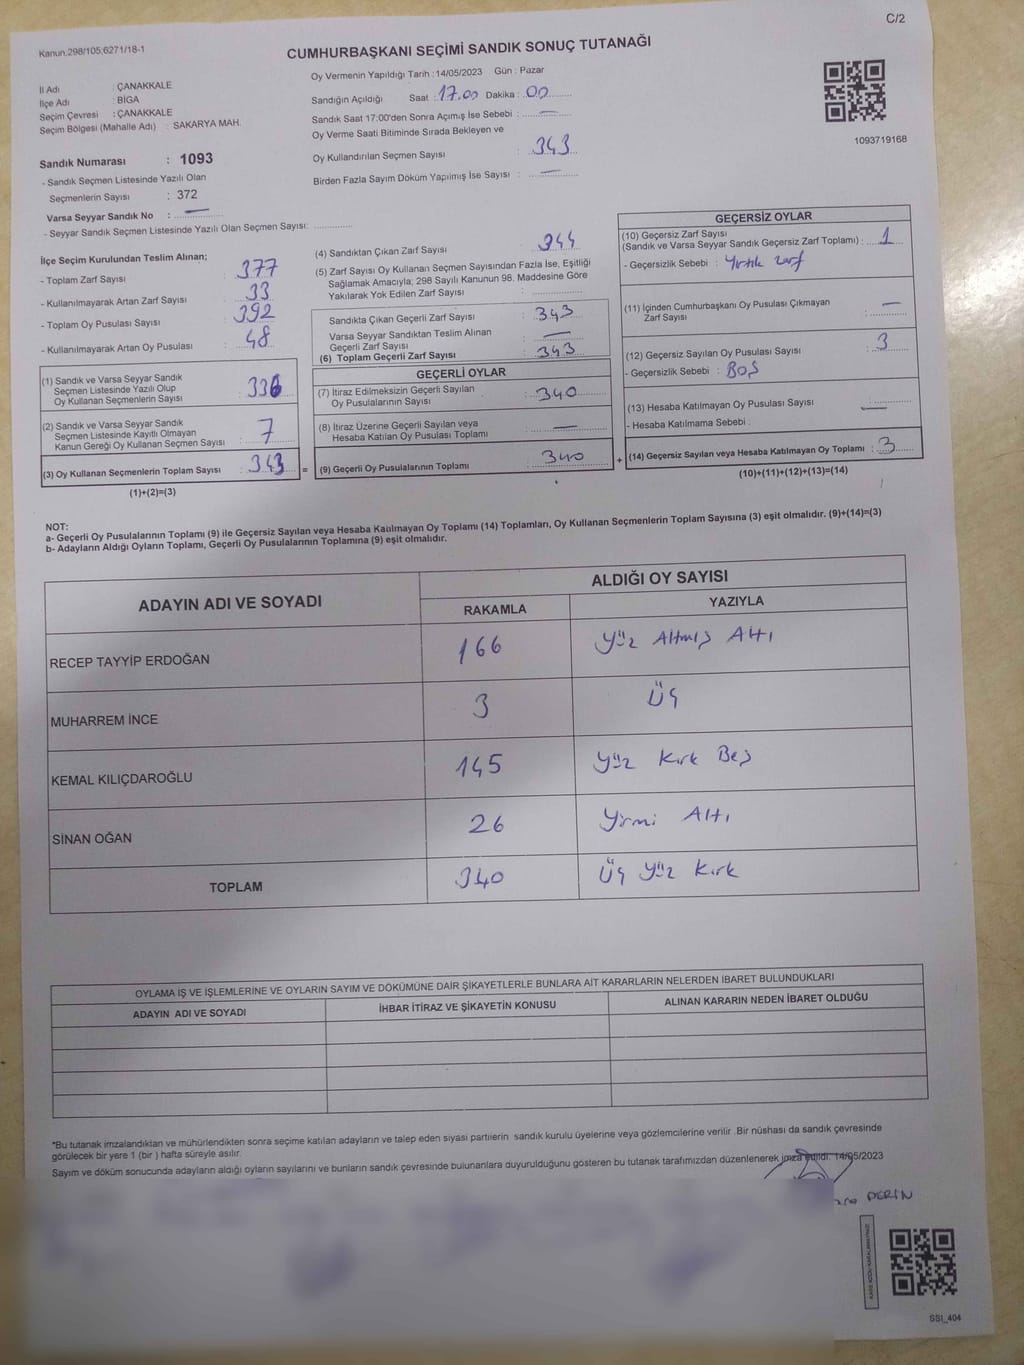 C/2
Kanun.298/105;6271/18-1
CUMHURBAŞKANI SEÇİMİ SANDIK SONUÇ TUTANAĞI
İl Adı : ÇANAKKALE
İlçe Adı : BİGA
Seçim Çevresi : ÇANAKKALE
Seçim Bölgesi (Mahalle Adı) : SAKARYA MAH.
Oy Vermenin Yapıldığı Tarih : 14/05/2023 Gün : Pazar
Sandığın Açıldığı Saat : 17.00 Dakika : 00
Sandık Saat 17:00'den Sonra Açımış İse Sebebi : —
Oy Verme Saati Bitiminde Sırada Bekleyen ve
Oy Kullandırılan Seçmen Sayısı : 343
Birden Fazla Sayım Döküm Yapılmış İse Sayısı : —
1093719168
Sandık Numarası : 1093
- Sandık Seçmen Listesinde Yazılı Olan
Seçmenlerin Sayısı : 372
Varsa Seyyar Sandık No : —
- Seyyar Sandık Seçmen Listesinde Yazılı Olan Seçmen Sayısı:
İlçe Seçim Kurulundan Teslim Alınan;
- Toplam Zarf Sayısı : 377
- Kullanılmayarak Artan Zarf Sayısı : 33
- Toplam Oy Pusulası Sayısı : 392
- Kullanılmayarak Artan Oy Pusulası : 48
(1) Sandık ve Varsa Seyyar Sandık
Seçmen Listesinde Yazılı Olup
Oy Kullanan Seçmenlerin Sayısı : 336
(2) Sandık ve Varsa Seyyar Sandık
Seçmen Listesinde Kayıtlı Olmayan
Kanun Gereği Oy Kullanan Seçmen Sayısı : 7
(3) Oy Kullanan Seçmenlerin Toplam Sayısı : 343 =
(1)+(2)=(3)
(4) Sandıktan Çıkan Zarf Sayısı : 344
(5) Zarf Sayısı Oy Kullanan Seçmen Sayısından Fazla İse, Eşitliği
Sağlamak Amacıyla; 298 Sayılı Kanunun 98. Maddesine Göre
Yakılarak Yok Edilen Zarf Sayısı :
Sandıkta Çıkan Geçerli Zarf Sayısı : 343
Varsa Seyyar Sandıktan Teslim Alınan
Geçerli Zarf Sayısı : —
(6) Toplam Geçerli Zarf Sayısı : 343
GEÇERLİ OYLAR
(7) İtiraz Edilmeksizin Geçerli Sayılan
Oy Pusulalarının Sayısı : 340
(8) İtiraz Üzerine Geçerli Sayılan veya
Hesaba Katılan Oy Pusulası Toplamı : —
(9) Geçerli Oy Pusulalarının Toplamı : 340 +
GEÇERSİZ OYLAR
(10) Geçersiz Zarf Sayısı
(Sandık ve Varsa Seyyar Sandık Geçersiz Zarf Toplamı) : 1
- Geçersizlik Sebebi : Yırtık zarf
(11) İçinden Cumhurbaşkanı Oy Pusulası Çıkmayan
Zarf Sayısı : —
(12) Geçersiz Sayılan Oy Pusulası Sayısı : 3
- Geçersizlik Sebebi : BOŞ
(13) Hesaba Katılmayan Oy Pusulası Sayısı : —
- Hesaba Katılmama Sebebi :
(14) Geçersiz Sayılan veya Hesaba Katılmayan Oy Toplamı : 3
(10)+(11)+(12)+(13)=(14)
NOT:
a- Geçerli Oy Pusulalarının Toplamı (9) ile Geçersiz Sayılan veya Hesaba Katılmayan Oy Toplamı (14) Toplamları, Oy Kullanan Seçmenlerin Toplam Sayısına (3) eşit olmalıdır. (9)+(14)=(3)
b- Adayların Aldığı Oyların Toplamı, Geçerli Oy Pusulalarının Toplamına (9) eşit olmalıdır.
ADAYIN ADI VE SOYADI
ALDIĞI OY SAYISI
RAKAMLA YAZIYLA
RECEP TAYYİP ERDOĞAN 166 Yüz Altmış Altı
MUHARREM İNCE 3 Üç
KEMAL KILIÇDAROĞLU 145 Yüz Kırk Beş
SİNAN OĞAN 26 Yirmi Altı
TOPLAM 340 Üç Yüz Kırk
OYLAMA İŞ VE İŞLEMLERİNE VE OYLARIN SAYIM VE DÖKÜMÜNE DAİR ŞİKAYETLERLE BUNLARA AİT KARARLARIN NELERDEN İBARET BULUNDUKLARI
ADAYIN ADI VE SOYADI İHBAR İTİRAZ VE ŞİKAYETİN KONUSU ALINAN KARARIN NEDEN İBARET OLDUĞU
*Bu tutanak imzalandıktan ve mühürlendikten sonra seçime katılan adayların ve talep eden siyasi partilerin sandık kurulu üyelerine veya gözlemcilerine verilir .Bir nüshası da sandık çevresinde
görülecek bir yere 1 (bir ) hafta süreyle asılır.
Sayım ve döküm sonucunda adayların aldığı oyların sayılarını ve bunların sandık çevresinde bulunanlara duyurulduğunu gösteren bu tutanak tarafımızdan düzenlenerek imza edildi. 14/05/2023
DERİN
SSI_404